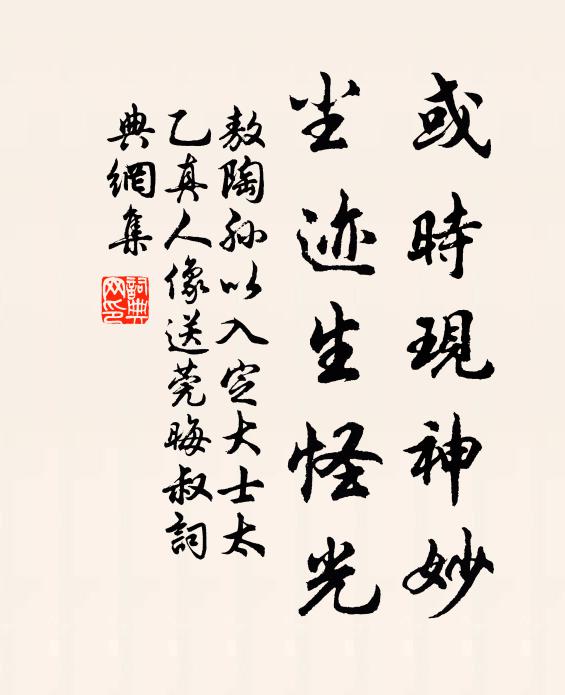 或時現神妙
尘迹生怪光
敖陶孙以入定大士太
乙真人像送莞晦叔詞
典網集
詞典网印